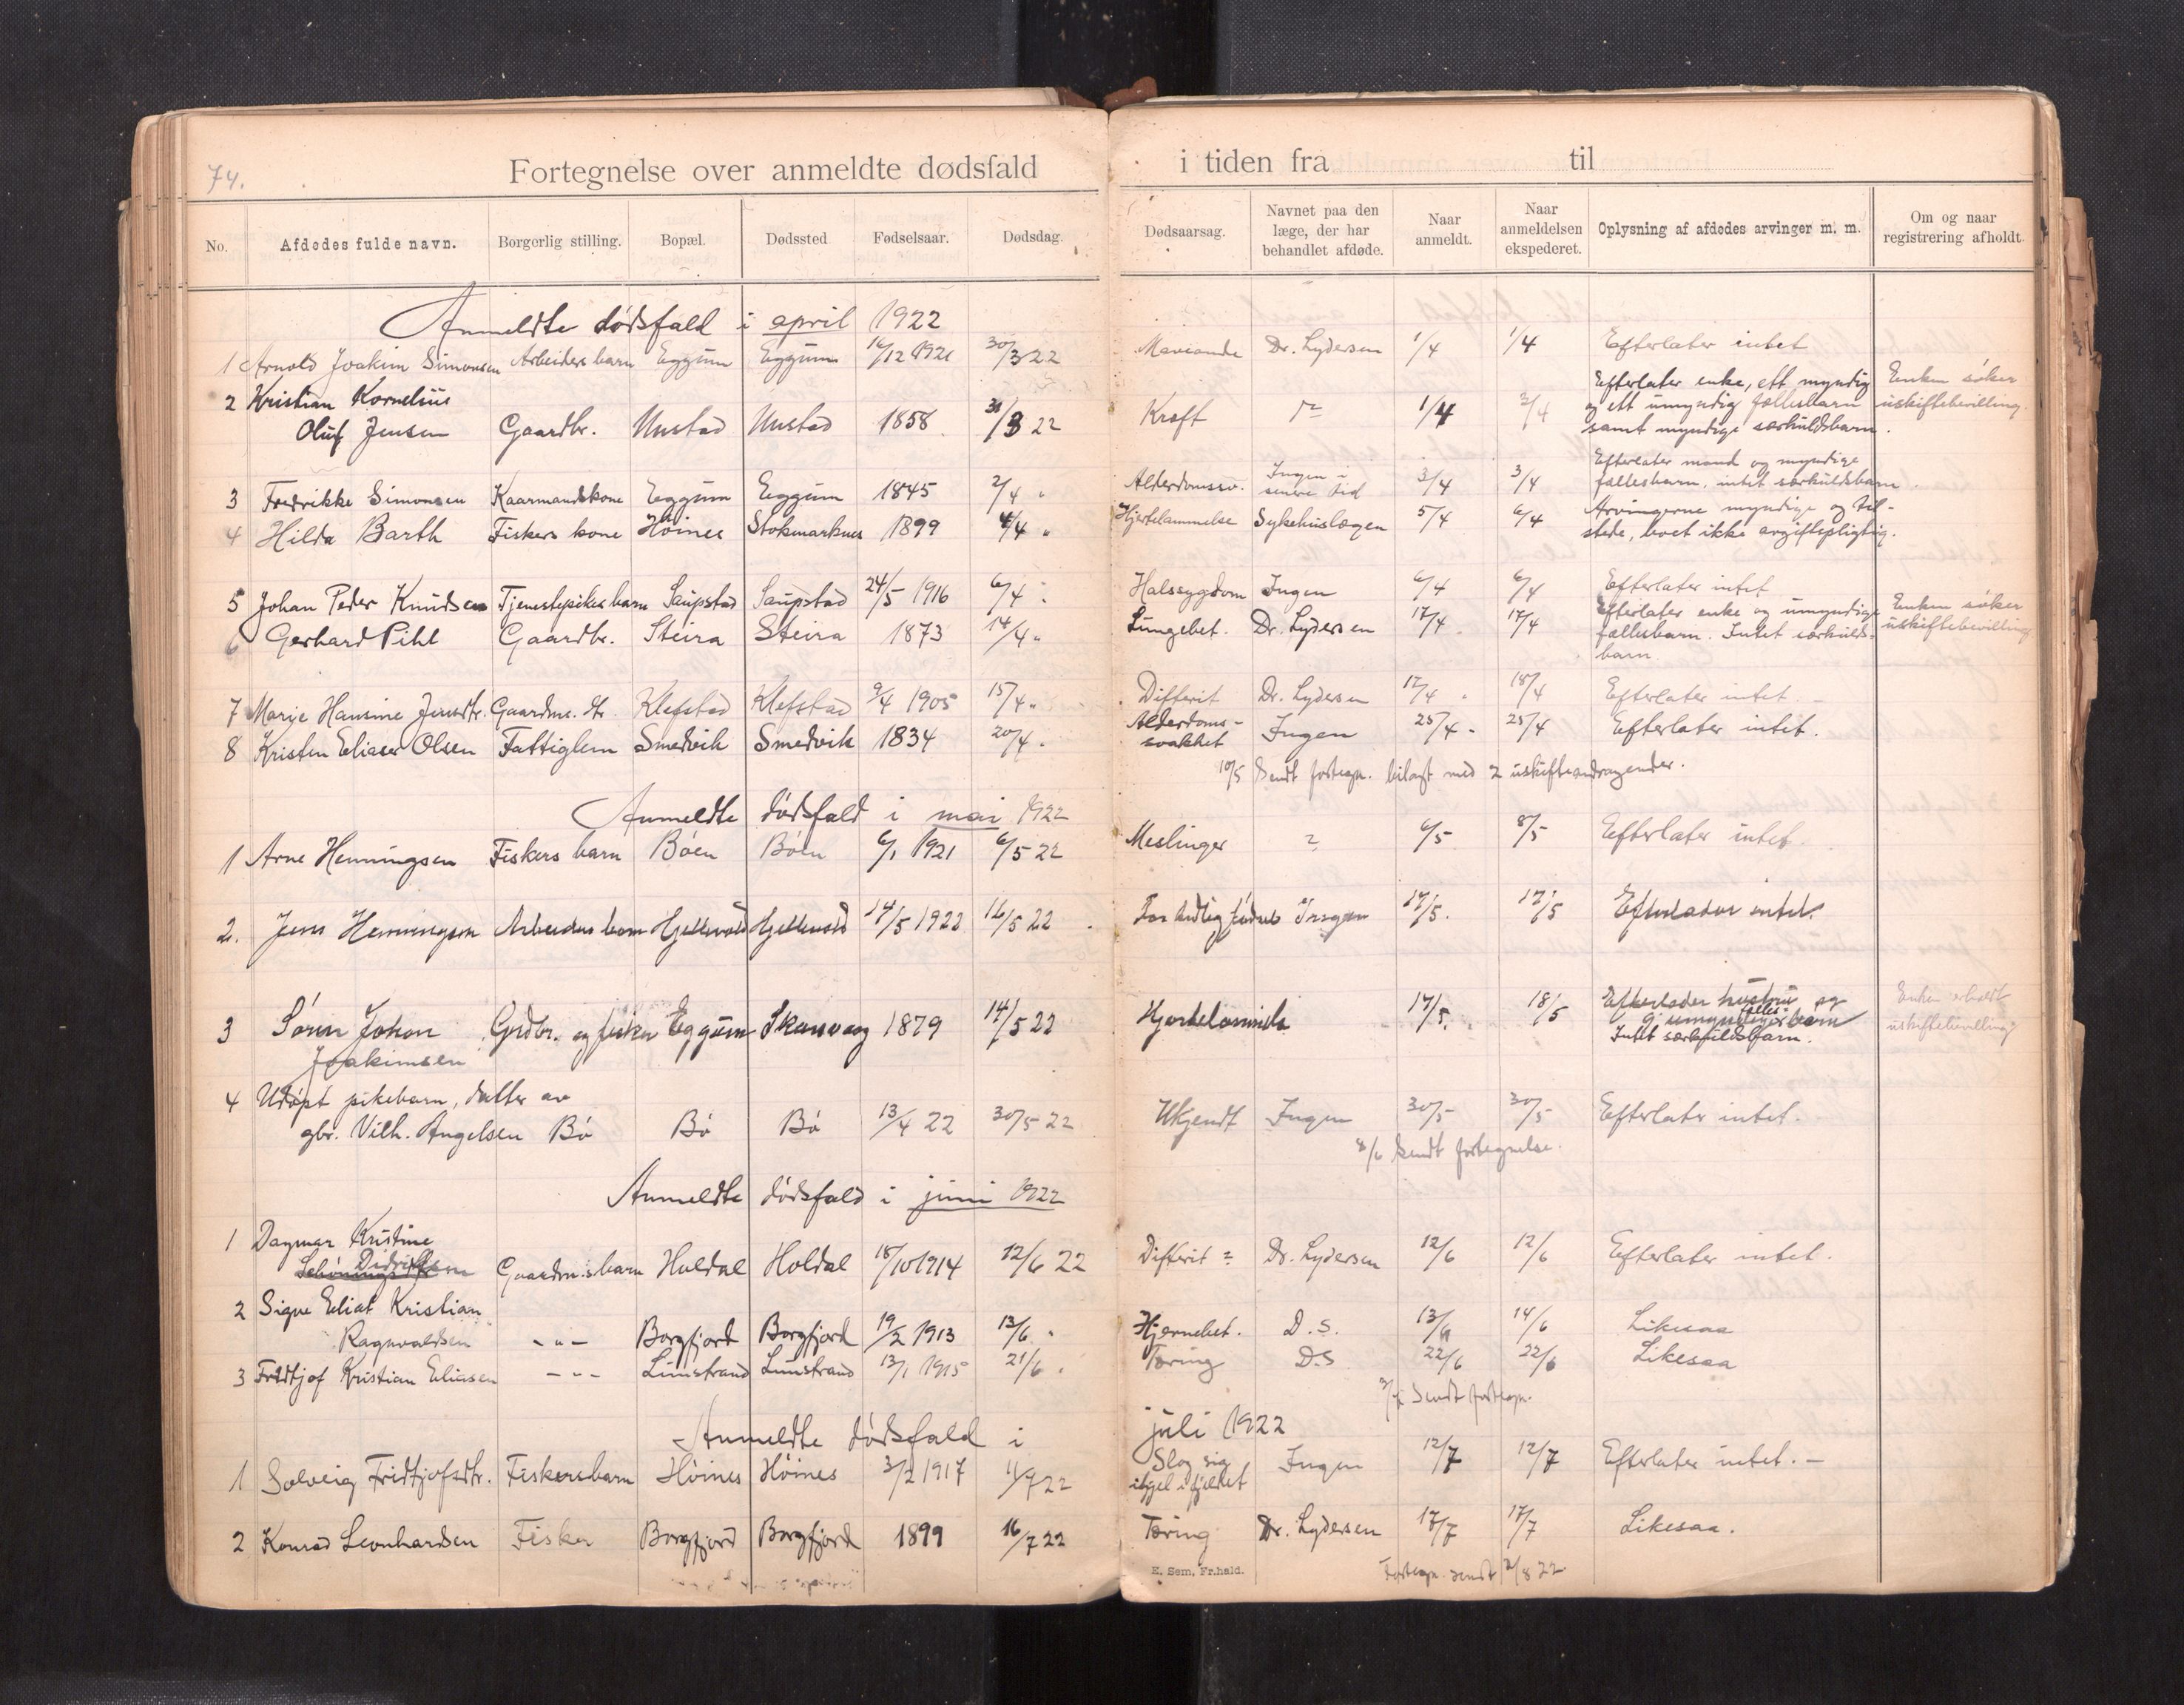 74.
Fortegnelse over anmeldte dødsfald i tiden fra til
No. Afdødes fulde navn. Borgerlig stilling. Bopæl. Dødssted Fødselsaar. Dødsdag. Dødsaarsag. Navnet paa den læge, der har behandlet afdøde. Naar anmeldt. Naar anmeldelsen ekspederet. Oplysning af afdødes arvinger m. m. Om og naar registrering afholdt.
Anmeldte dødsfald i april 1922
1 Arnold Joakim Simonsen Arbeiders barn Eggum Eggum 16/12 1921 30/3 22 Dr. Lydersen 1/4 1/4 Efterlater intet
2 Kristian Kornelius
Oluf Jensen Gaardbr. Unstad Unstad 1858 31/3 22 Kræft 1/4 3/4 Efterlater enke, ett myndig
og ett umyndig fællesbarn
samt myndige særkuldsbarn. Enken søker
uskiftebevilling.
3 Fredrikke Simonsen Kaarmandskone Eggum Eggum 1845 2/4 " Alderdomssv. Ingen i
senere tid 3/4 3/4 Efterlater mand og myndige
fællesbarn, intet særkuldsbarn.
4 Hilda Barth Fiskers kone Høines Stokmarknes 1899 4/4 " Hjertelammelse Sykehuslægen 5/4 6/4 Arvingerne myndige og til-
stede, boet ikke avgiftspligtig.
5 Johan Peder Knudsen Tjenestepikes barn Saupstad Saupstad 24/5 1916 6/4 " Halssygdom Ingen 6/4 6/4 Efterlater intet
6 Gerhard Pihl Gaardbr. Steira Steira 1873 14/4 " Lungebet. Dr. Lydersen 17/4 17/4 Efterlater enke og umyndige
fællesbarn. Intet særkulds-
barn. Enken søker
uskiftebevilling
7 Marie Hansine Jensdtr. Gaardm. dtr. Klefstad Klefstad 9/4 1905 15/4 " Difterit Dr. Lydersen 17/4 18/4 Efterlater intet
8 Kristen Eliaser Olsen Fattiglem Smedvik Smedvik 1834 20/4 " Alderdoms-
svakhet Ingen 25/4 25/4 Efterlater intet.
10/5 Sendt fortegn. bilagt med 2 uskifteandragender.
Anmeldte dødsfald i mai 1922
1 Arne Henningsen Fiskers barn Bøen Bøen 6/1 1921 6/5 22 Meslinger ? 6/5 8/5 Efterlater intet.
2. Jens Henningsen Arbeiders barn Hjellvold Hjellvold 14/5 1922 16/5 22 For tidlig fødsel Ingen 17/5. 17/5 Efterlader intet.
3 Søren Johan
Joakimsen Grdbr. og fisker Eggum 1879 14/5 22 17/5. 18/5 Efterlader hustru og
9 umyndige fælles barn
Intet særkuldsbarn. Enken erholdt
uskiftebevilling
4 Udøpt pikebarn, datter av
gbr. Vilh. Angelsen Bø Bø Bø 13/4 22 30/5 22 Ukjendt Ingen 30/5 30/5 Efterlater intet.
8/6 Sendt fortegnelse.
Anmeldte dødsfald i juni 1922
1 Dagmar Kristine
Didriksen Gaardm.s barn Holdal Holdal 18/10 1914 12/6 22 Difterit ? Dr. Lydersen 12/6 12/6 Efterlater intet.
2 Signe Eliat Kristian
Ragnvaldsen - " - Borgfjord Borgfjord 19/2 1913 13/6 " Hjernebet. D. S. 13/6 14/6 Likesaa
3 Fridtjof Kristian Eliasen - " - Limstrand Limstrand 13/1 1915 21/6 . Tæring D.S 22/6 22/6 Likesaa
3/7 Sendt fortegn.
Anmeldte dødsfald i juli 1922
1 Solveig Fridtjofsdtr. Fiskersbarn Høines Høines 3/2 1917 11/7 22 Slog sig
ihjel i fjeldet Ingen 12/7 12/7 Efterlater intet. -
2 Konrad Leonhardsen Fisker Borgfjord Borgfjord 1899 16/7 22 Tæring Dr. Lydersen 17/7 17/7 Likesaa.
E. Sem, Fr.hald.
Fortegn. sendt 2/8 22